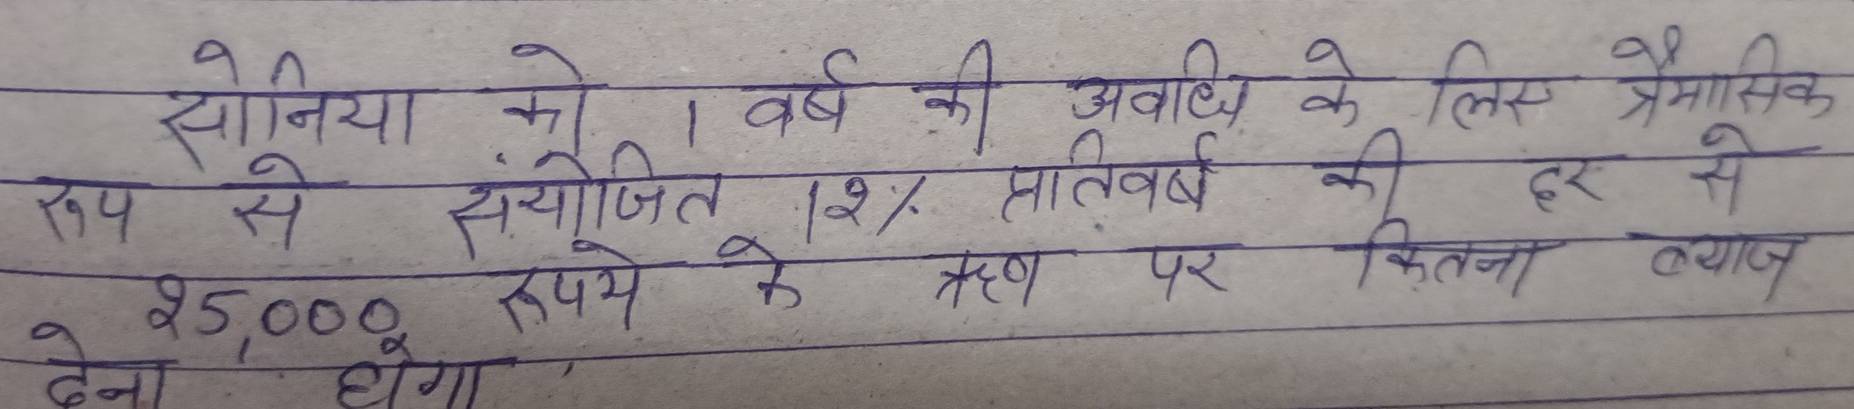 सोनिया को 1 वर्ष की अवधि के लिस त्रैमासिक
रूप से संयोजित 12% प्रतिवर्ष की दर से
25,000 रूपये के ऋण पर कितना ब्याज
देना होगा